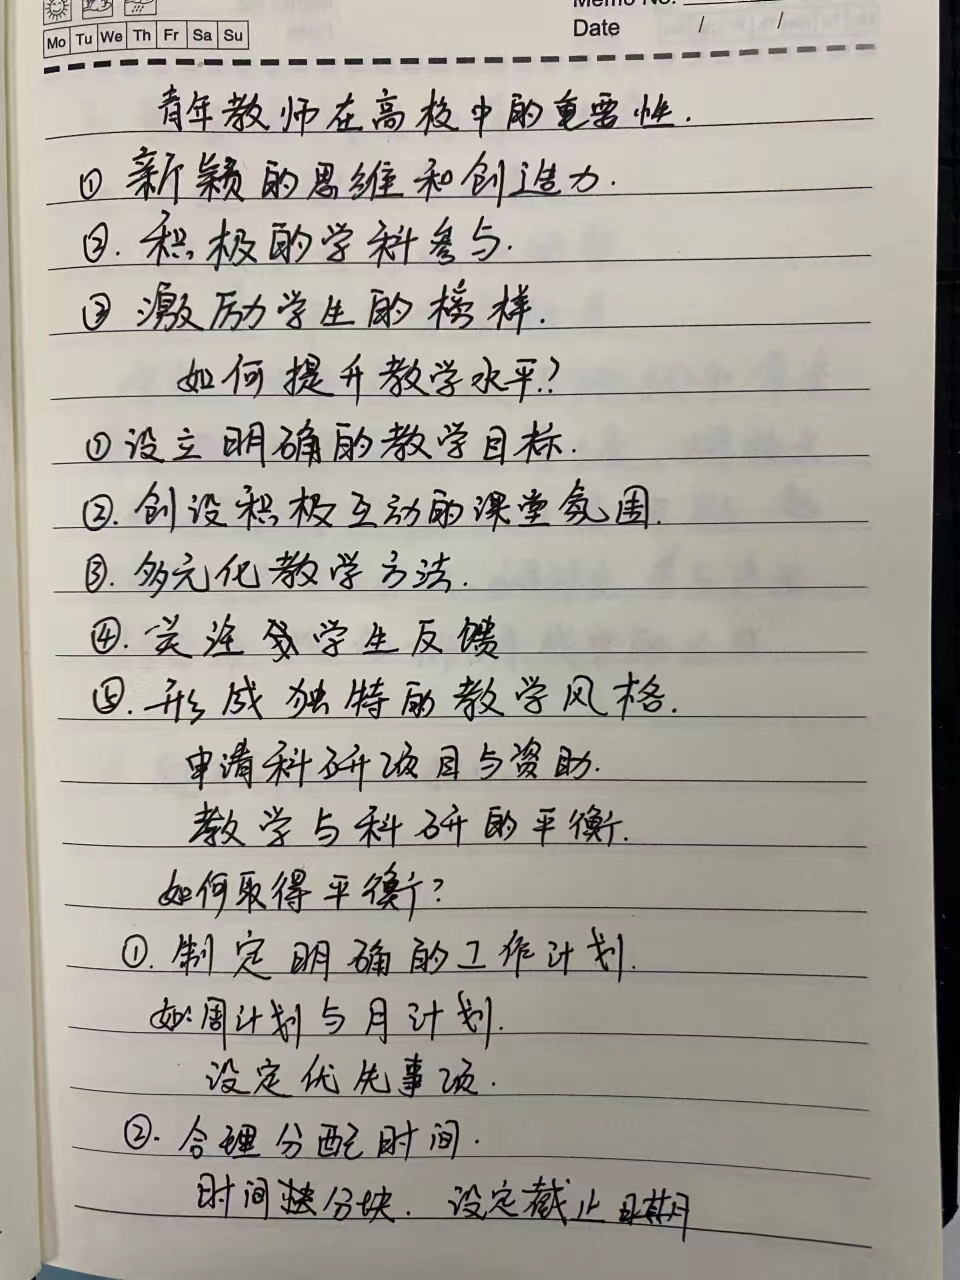 Memo No.
Mo Tu We Th Fr Sa Su
Date / /
青年教师在高校中的重要性.
① 新颖的思维和创造力.
②. 积极的学科参与.
③ 激励学生的榜样.
如何提升教学水平?
① 设立明确的教学目标.
②. 创设积极互动的课堂氛围.
③. 多元化教学方法.
④. 关注学生反馈
⑤. 形成独特的教学风格.
申请科研项目与资助.
教学与科研的平衡.
如何取得平衡?
①. 制定明确的工作计划.
如:周计划与月计划.
设定优先事项.
②. 合理分配时间.
时间分块. 设定截止日期